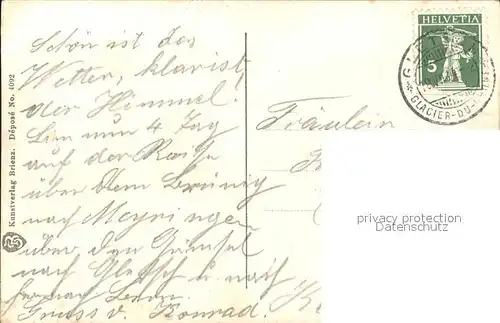 Schön ist das
Wetter, klar ist
der Himmel!
Bin nun 4 Tag
auf der Reise
über dem Brünig
nach Meyringen
über den Grimsel
nach Gletsch u. nach
Gruss v. Konrad.
Fräulein
HELVETIA
5
GLACIER-DU-
Kunstverlag Brienz. Déposé No. 4092
privacy protection
Datenschutz